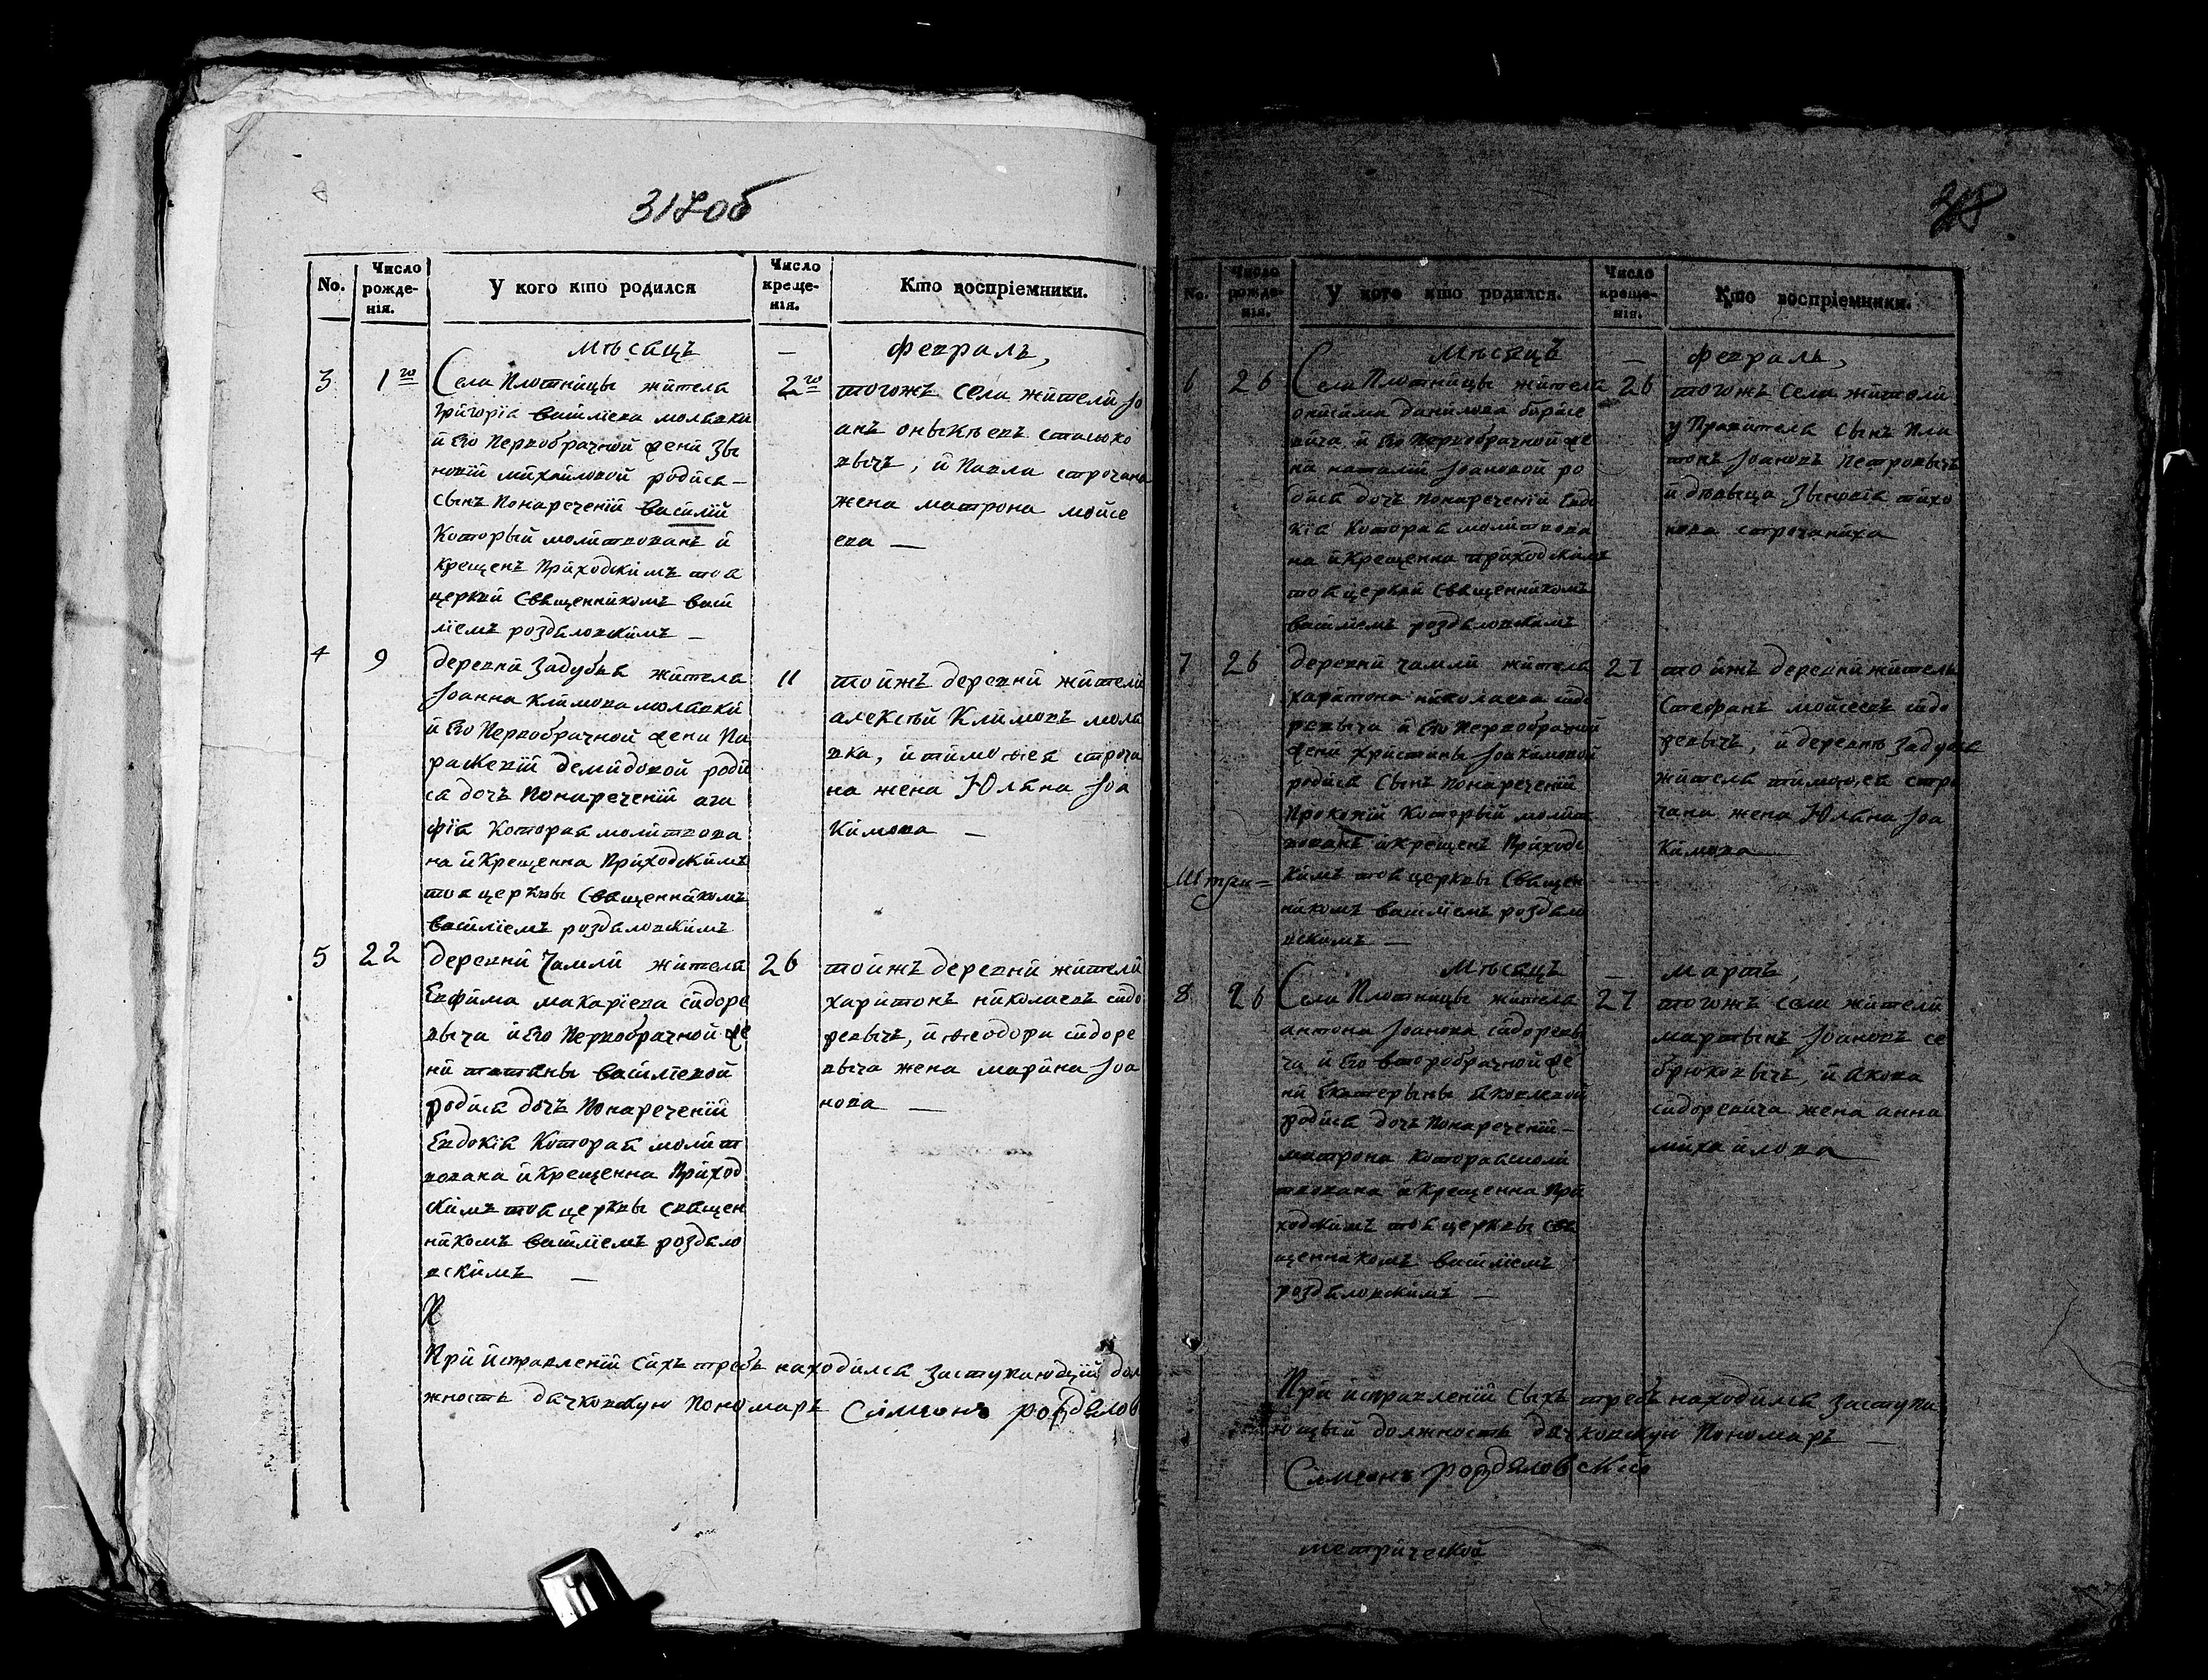 317об
No.
Число рожде-нія.
У кого кто родился
Число креще-нія.
Кто воспріемники.
Мѣсяцъ — февраль,
3 1го
Села Плотницы жителя
григорія василіева молявки
и его первобрачной жени зы
новіи михайловой родися —
сынъ понареченій василій
который молитвованъ и
крещенъ приходскимъ тоя
церкви священникомъ васи
ліемъ роздяловскимъ —
2го
тогожъ села жители іо
анъ оныкѣевъ стасюко
вычъ, и павла строчана
жена матрона мойсе
ева —
4 9
деревни задубья жителя
іоанна климова молявки
и его первобрачной жени па
раскевіи демидовой роди
ся дочъ понареченіи ага
фія которая молитвова
на и крещенна приходскимъ
тоя церквы священникомъ
василіемъ роздяловскимъ
11
тоижъ деревни жители
алексѣй климовъ моля
вка, и тимоѳея строча
на жена юляна іоа
кимова —
5 22
деревни чамли жителя
евфима макаріева сидоре
выча и его первобрачной же
ни татяны василіевой
родися дочъ понареченіи
евдокія которая молит
вована и крещенна приход
скимъ тоя церквы священ
никомъ василіемъ роздяло
вскимъ —
26
тоижъ деревни жители
харитонъ николаевъ сидо
ревычъ, и ѳеодора сидоре
выча жена марина іоа
нова —
При исправленіи сихъ требъ находился заступающій дол
жность дячковскую пономаръ Симеонъ роздялов
No.
Число рожде-нія.
У кого кто родился.
Число креще-нія.
Кто воспріемники.
Мѣсяцъ — февраль,
6 26
Села Плотницы жителя
онисима данилова борисе
вича и его первобрачной же
ни наталіи іоановой ро
дися дочъ понареченіи евдо
кія которая молитвова
на и крещенна приходскимъ
тоя церкви священникомъ
василіемъ роздяловскимъ
26
тогожъ села жители
управителя сынъ пла
тонъ іоановъ петровычъ
и дѣвыца зыновія тихо
нова строчаниха
7 26
деревни чамли жителя
харитона николаева сидо
ревыча и его первобрачной
жени христины іоакимовой
родися сынъ понареченіи
прокопій который молит
вованъ и крещенъ приходс
кимъ тоя церквы священ
никомъ василіемъ роздяло
вскимъ —
27
тоижъ деревни житель
стефанъ мойсеевъ сидо
ревычъ, и деревнѣ задубья
жителя тимоѳея стро
чана жена юляна іоа
кимова —
Мѣсяцъ — мартъ,
8 26
Села Плотницы жителя
антона іоанова сидоревы
ча и его второбрачной же
ни екатерыны яковлевой
родися дочъ понареченіи —
матрона которая моли
твована и крещенна при
ходскимъ тоя церквы свя
щенникомъ василіемъ
роздяловскимъ —
27
тогожъ села жители
мартынъ іоановъ се
брюковычъ, и якова
сидоревича жена анна
михайлова
При исправленіи сыхъ требъ находился заступа
ющый должность дячковскую пономаръ —
Симеонъ роздяловскій
метрической